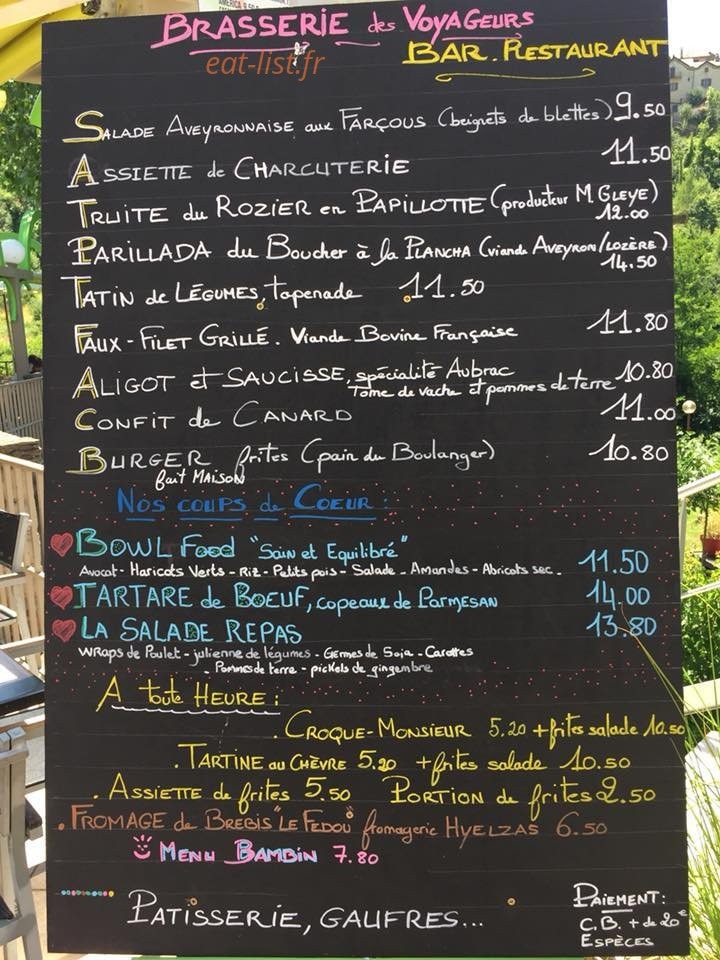 BRASSERIE des VOYAGEURS
eat-list.fr
BAR. RESTAURANT
SALADE AVEYRONNAISE aux FARÇOUS (beignets de blettes) 9.50
ASSIETTE de CHARCUTERIE 11.50
TRUITE du ROZIER en PAPILLOTTE (producteur M. GLEYE)
12.00
PARILLADA du Boucher à la PLANCHA (viande AVEYRON/LOZÈRE)
14.50
TATIN de LÉGUMES, tapenade 11.50
FAUX-FILET GRILLÉ. Viande Bovine Française 11.80
ALIGOT et SAUCISSE, spécialité Aubrac 10.80
Tome de vache et pommes de terre
CONFIT de CANARD 11.00
BURGER frites (pain du Boulanger) 10.80
fait MAISON
NOS COUPS de COEUR :
BOWL Food "Sain et Equilibré" 11.50
Avocat - Haricots Verts - Riz - Petits pois - Salade - Amandes - Abricots sec.
TARTARE de BOEUF, copeaux de PARMESAN 14.00
LA SALADE REPAS 13.80
WRAPS de Poulet - julienne de légumes - Germes de Soja - Carottes
- Pommes de terre - pickels de gingembre
A toute HEURE :
. CROQUE-MONSIEUR 5.20 + frites salade 10.50
. TARTINE au CHÈVRE 5.20 + frites salade 10.50
. ASSIETTE de frites 5.50 PORTION de frites 2.50
. FROMAGE de BREBIS "LE FEDOU" fromagerie HYELZAS 6.50
MENU BAMBIN 7.80
PATISSERIE, GAUFRES...
PAIEMENT :
C.B. + de 20€
ESPÈCES